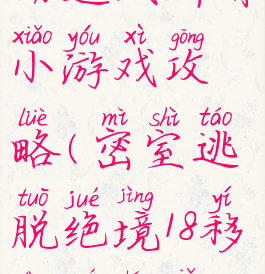 xiǎo yóu xì gōng
小游戏攻
lüè mì shì táo
略(密室逃
tuō jué jìng yí
脱绝境18移